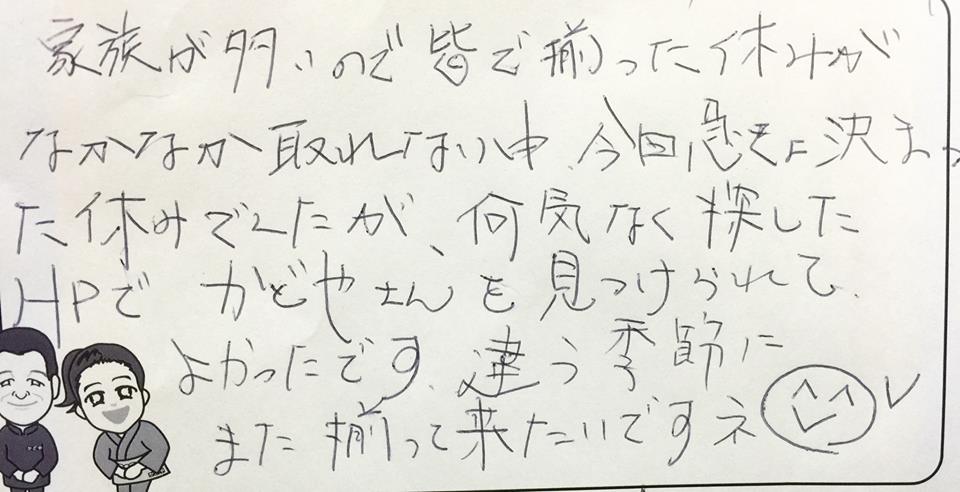 家族が多いので皆で揃った休みが
なかなか取れない中、今回急きょ決まっ
た休みでしたが、何気なく探した
HPで かどやさんを見つけられて、
よかったです。違う季節に
また揃って来たいですネ